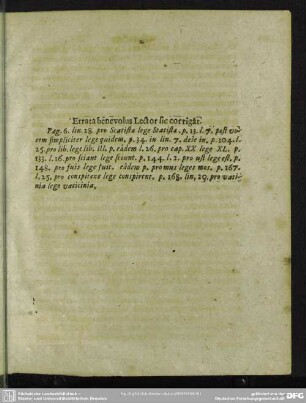 Errata benevolus Lector sic corrigat.
Pag. 6. lin. 28. pro Statistæ lege Statista, p. 13. l. 7. post vo-
cem simpliciter lege quidem, p. 34. in lin. 7. dele in, p. 104. l.
25. pro lib. lege lib. III. p. eâdem l. 26. pro cap. XX lege XL. p.
133. l. 16. pro sciant lege sciunt. p. 144. l. 2. pro ust lege est, p.
148. pro fuis lege fuit. eâdem p. pro mus lege mos. p. 167.
l. 25. pro conspirere lege conspirent. p. 168. lin. 29. pro vati-
nia lege vaticinia.
Sächsische Landesbibliothek -
Staats- und Universitätsbibliothek Dresden
gefördert von der
Deutschen Forschungsgemeinschaft
DFG